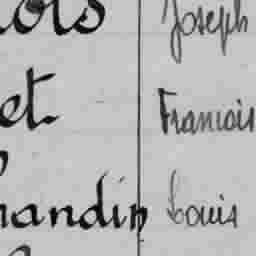 ois Joseph
et Francois
handin Louis